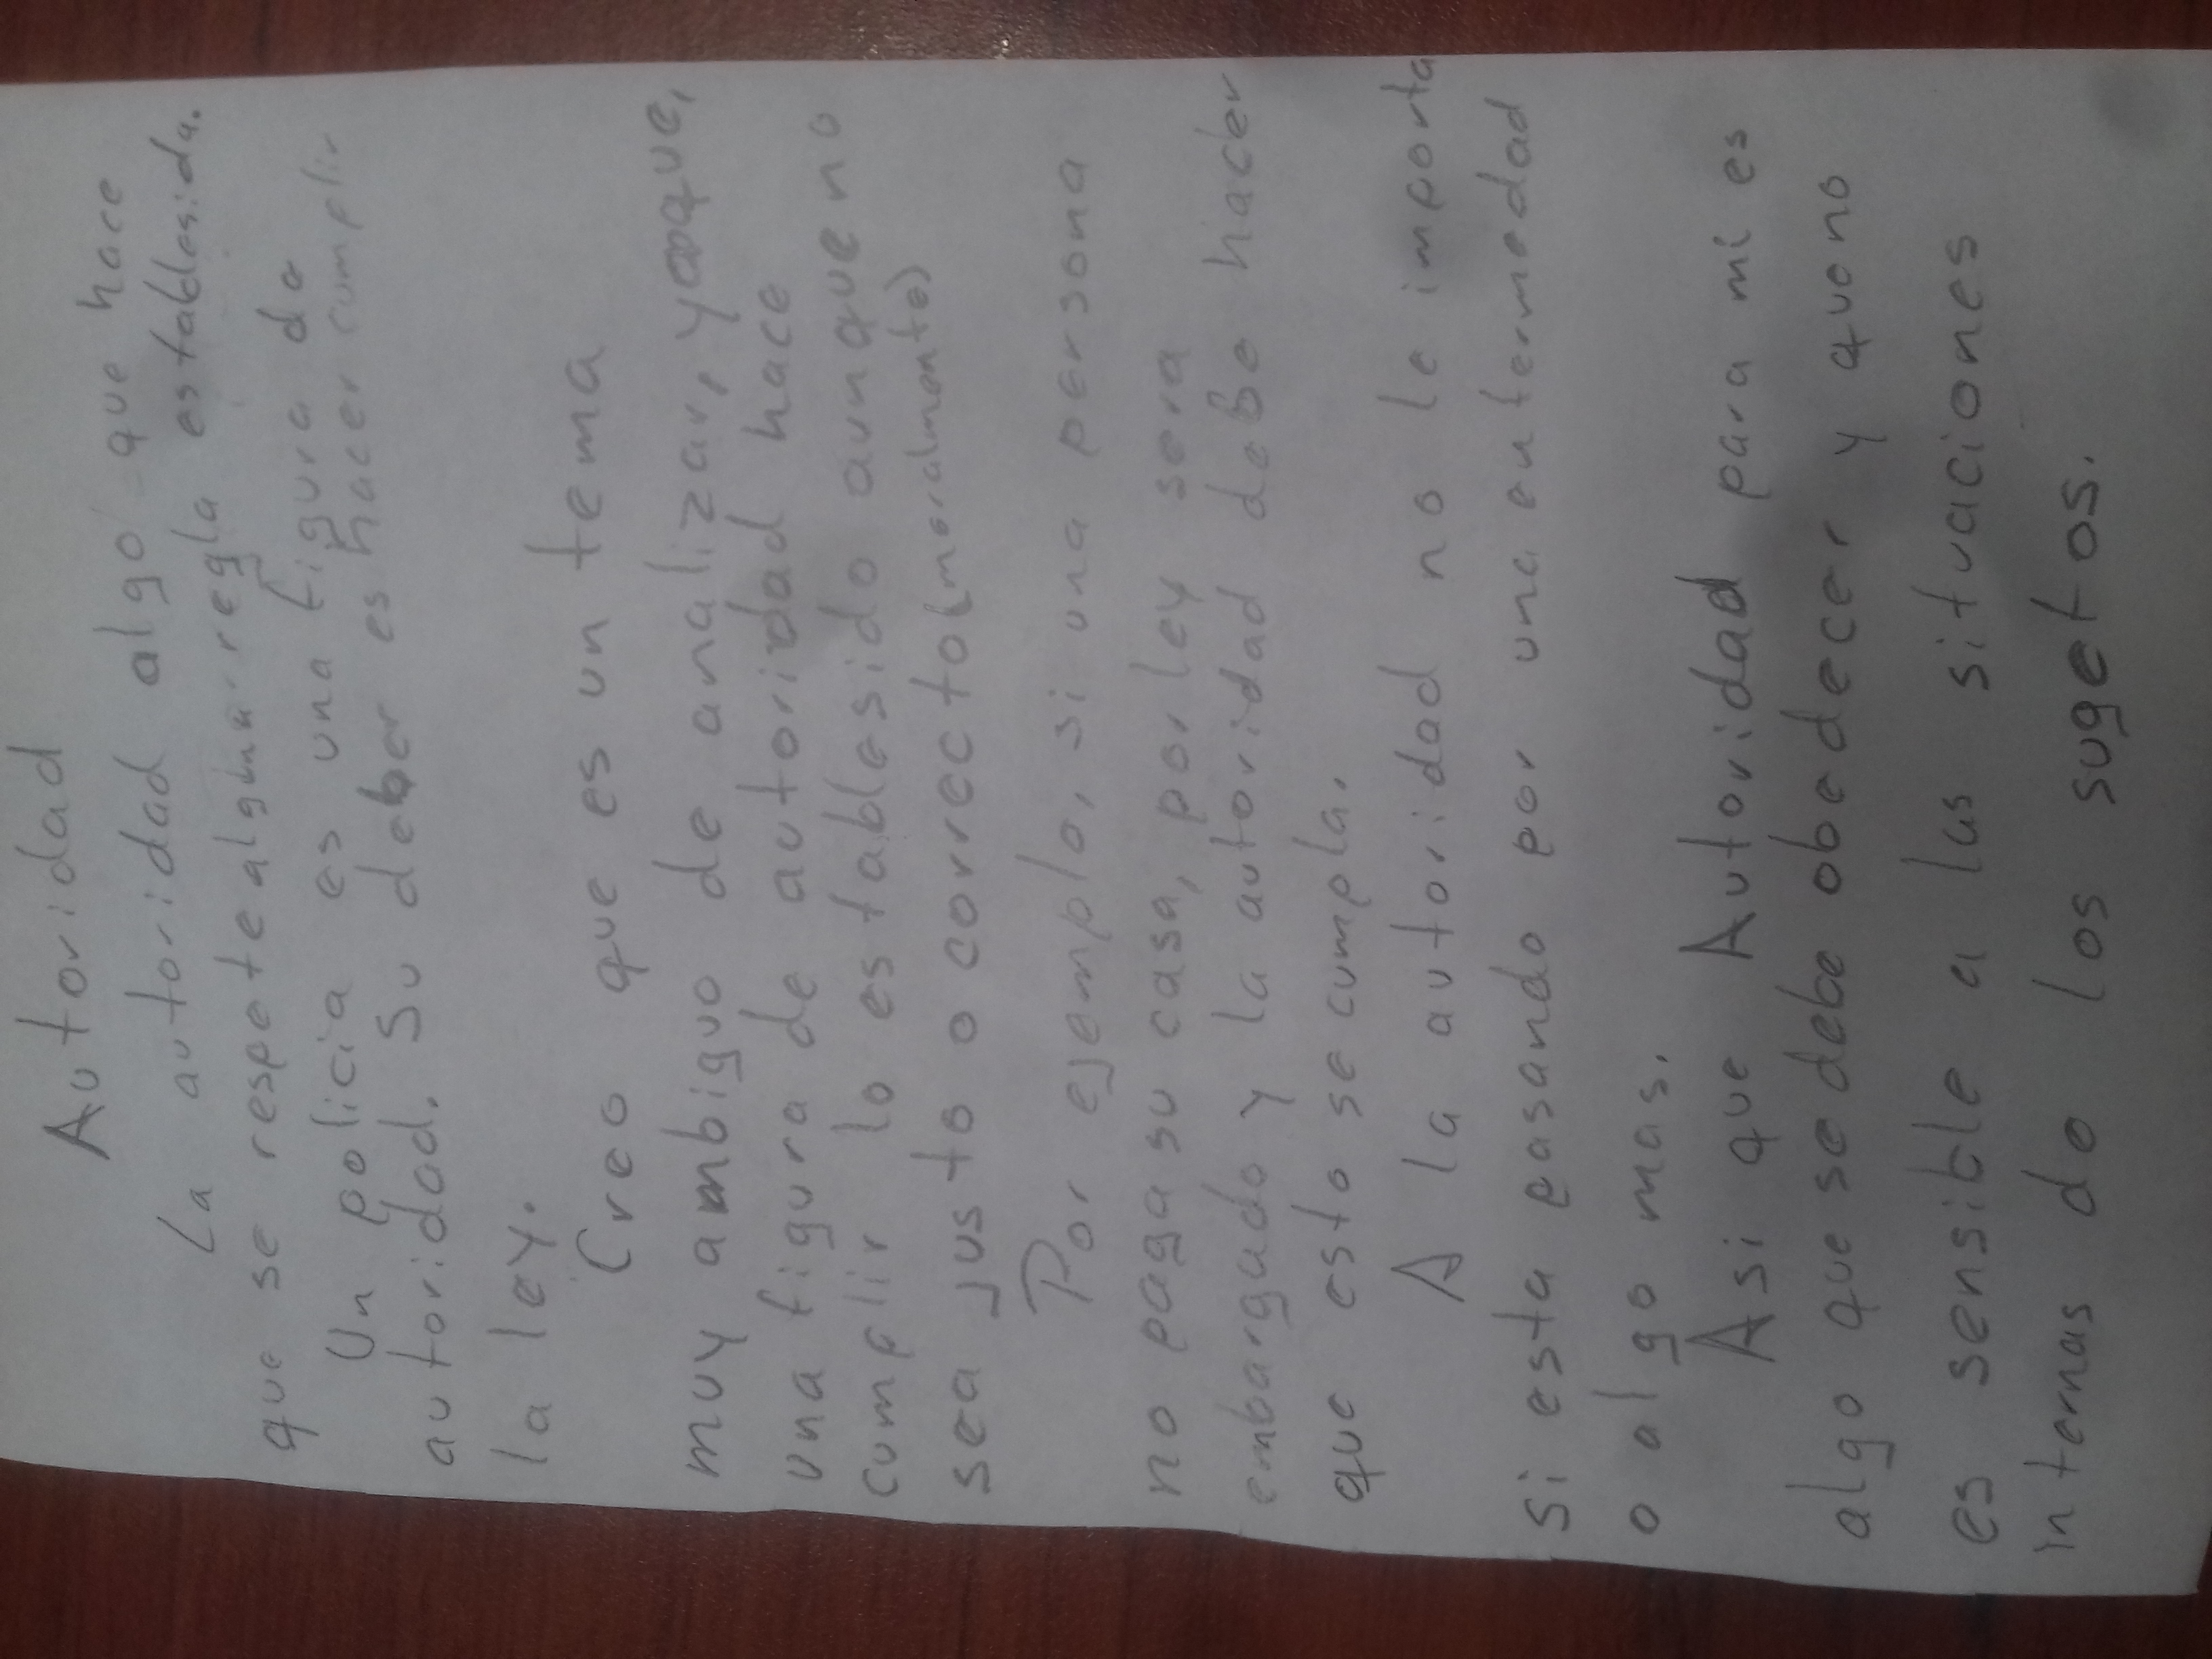 Autoridad
La autoridad algo que hace
que se respete alguna regla establesida.
Un policia es una figura de
autoridad. Su deber es hacer cumplir
la ley.
Creo que es un tema
muy ambiguo de analizar, ya que,
una figura de autoridad hace
cumplir lo establesido aunque no
sea justo o correcto (moralmente)
Por ejemplo, si una persona
no paga su casa, por ley sera
embargado y la autoridad debe hacer
que esto se cumpla.
A la autoridad no le importa
si esta pasando por una enfermedad
o algo mas.
Asi que Autoridad para mi es
algo que se debe obedecer y que no
es sensible a las situaciones
internas de los sugetos.